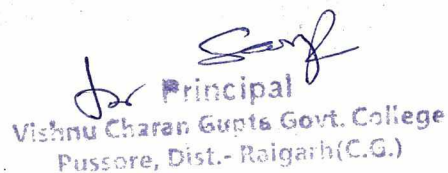 for Principal
Vishnu Charan Gupta Govt. College
Pussore, Dist.- Raigarh(C.G.)